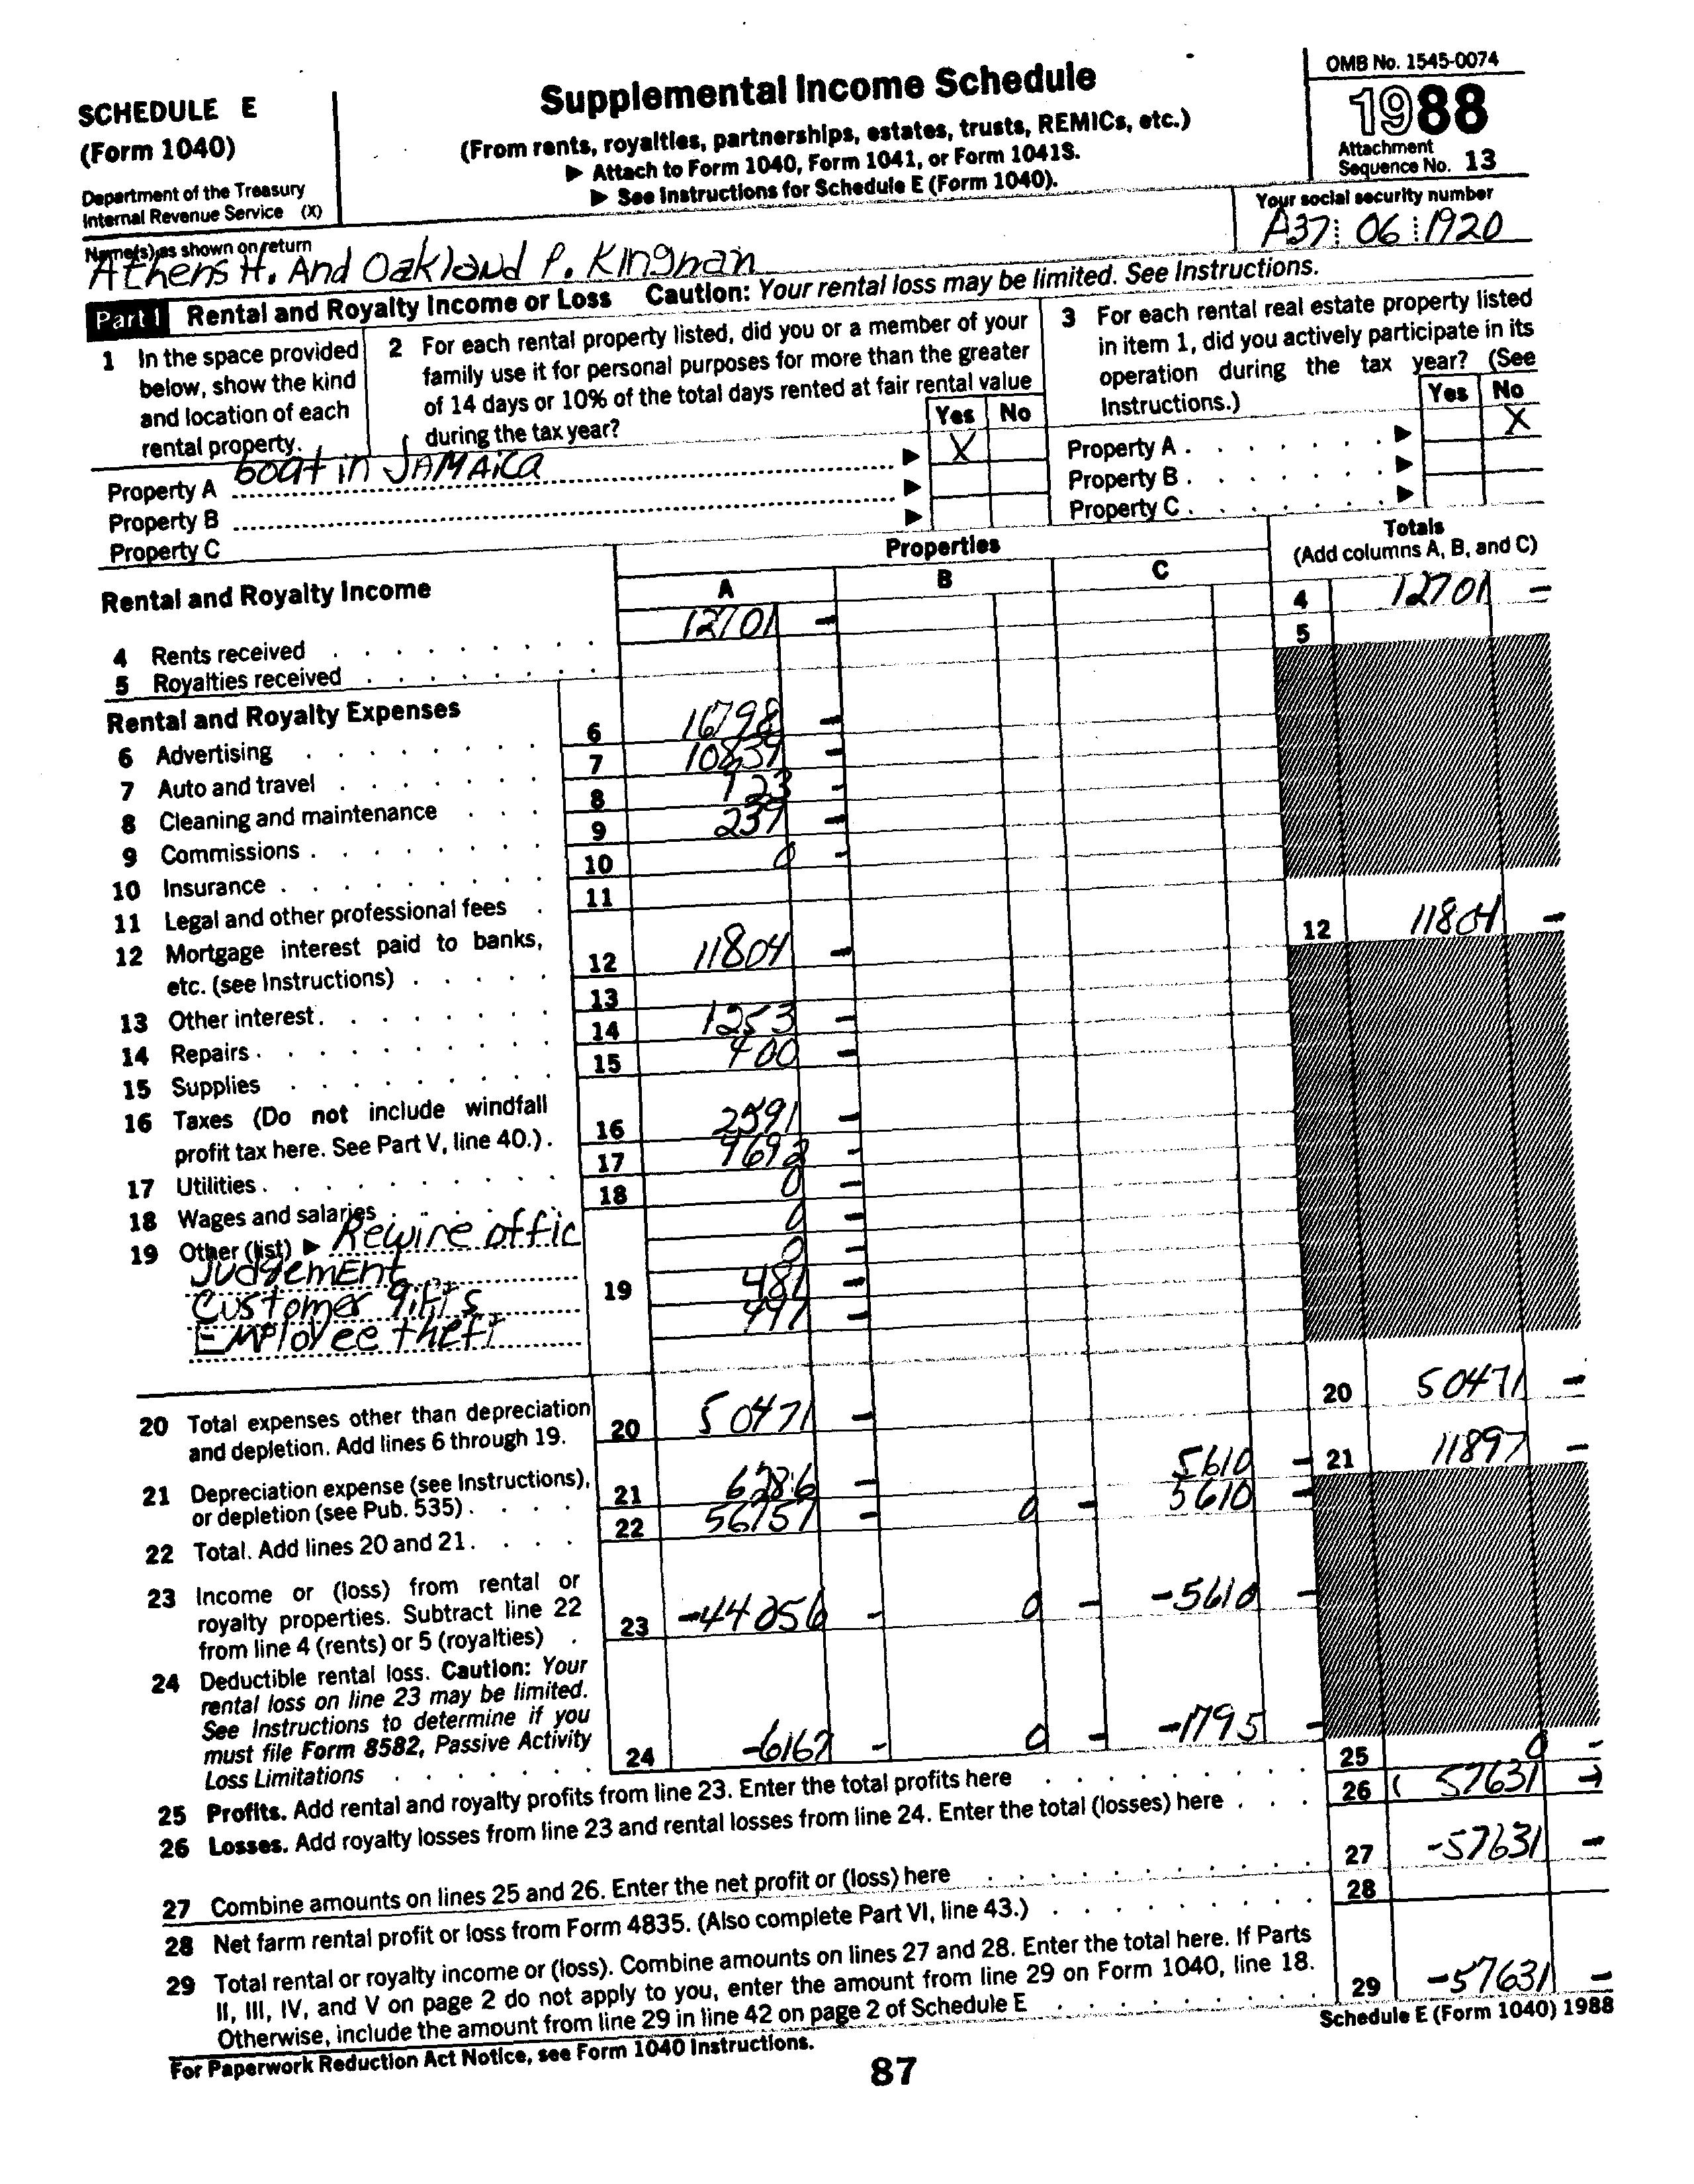 SCHEDULE E
(Form 1040)
Department of the Treasury
Internal Revenue Service (X)
Supplemental Income Schedule
(From rents, royalties, partnerships, estates, trusts, REMICs, etc.)
▶ Attach to Form 1040, Form 1041, or Form 1041S.
▶ See Instructions for Schedule E (Form 1040).
OMB No. 1545-0074
1988
Attachment
Sequence No. 13
Name(s) as shown on return
Athens H. And Oakland P. Kingman
Your social security number
A37 06 1920
Part I Rental and Royalty Income or Loss Caution: Your rental loss may be limited. See Instructions.
1 In the space provided
below, show the kind
and location of each
rental property.
2 For each rental property listed, did you or a member of your
family use it for personal purposes for more than the greater
of 14 days or 10% of the total days rented at fair rental value
during the tax year?
Yes No
3 For each rental real estate property listed
in item 1, did you actively participate in its
operation during the tax year? (See
Instructions.)
Yes No
Property A boat in JAMAiCa ▶ X
Property B ▶
Property C ▶
Property A . . . . . . ▶ X
Property B . . . . . . ▶
Property C . . . . . . ▶
Rental and Royalty Income
Properties
A B C
Totals
(Add columns A, B, and C)
4 Rents received 12701 - 4 12701 -
5 Royalties received 5
Rental and Royalty Expenses
6 Advertising 6 16798 -
7 Auto and travel 7 10839 -
8 Cleaning and maintenance 8 -
9 Commissions 9 239 -
10 Insurance 10 0 -
11 Legal and other professional fees 11
12 Mortgage interest paid to banks,
etc. (see Instructions) 12 11804 - 12 11804 -
13 Other interest 13
14 Repairs 14 1253 -
15 Supplies 15 -
16 Taxes (Do not include windfall
profit tax here. See Part V, line 40.) 16 2591 -
17 Utilities 17 -
18 Wages and salaries 18 0 -
19 Other (list) ▶ Rewire offic 0 -
Judgement 0 -
Customer gifts 19 481 -
Employee theft -
20 Total expenses other than depreciation
and depletion. Add lines 6 through 19. 20 50471 - 20 50471 -
21 Depreciation expense (see Instructions),
or depletion (see Pub. 535) 21 6286 - 5610 - 21 11897 -
22 Total. Add lines 20 and 21. 22 56757 - 0 - 5610 -
23 Income or (loss) from rental or
royalty properties. Subtract line 22
from line 4 (rents) or 5 (royalties) 23 -44056 - 0 - -5610 -
24 Deductible rental loss. Caution: Your
rental loss on line 23 may be limited.
See Instructions to determine if you
must file Form 8582, Passive Activity
Loss Limitations 24 -6167 - 0 - -1795 -
25 Profits. Add rental and royalty profits from line 23. Enter the total profits here 25 0 -
26 Losses. Add royalty losses from line 23 and rental losses from line 24. Enter the total (losses) here 26 ( 57631 -)
27 Combine amounts on lines 25 and 26. Enter the net profit or (loss) here 27 -57631 -
28 Net farm rental profit or loss from Form 4835. (Also complete Part VI, line 43.) 28
29 Total rental or royalty income or (loss). Combine amounts on lines 27 and 28. Enter the total here. If Parts
II, III, IV, and V on page 2 do not apply to you, enter the amount from line 29 on Form 1040, line 18.
Otherwise, include the amount from line 29 in line 42 on page 2 of Schedule E 29 -57631 -
For Paperwork Reduction Act Notice, see Form 1040 Instructions.
Schedule E (Form 1040) 1988
87